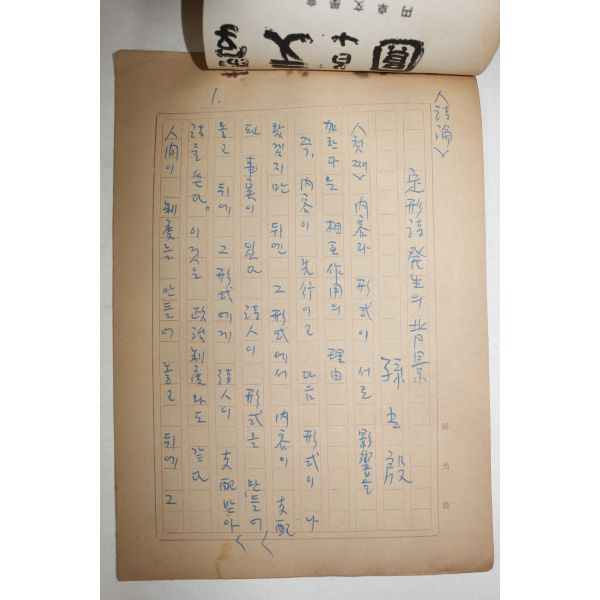 円卓文學會
〈詩論〉
定形詩 發生의 背景
孫
〈첫째〉 內容과 形式이 서로 影響을
加한다는 相互作用의 理由
즉, 內容이 先行이고 다음 形式이 나
왔겠지만 뒤엔 그 形式에서 內容이 支配
된 事實이 있다 詩人이 形式을 만들어
놓고 뒤에 그 形式에게 詩人이 支配받아
詩를 쓴다. 이것은 政治制度와도 같다
人間이 制度를 만들어 놓고 뒤에 그
1.